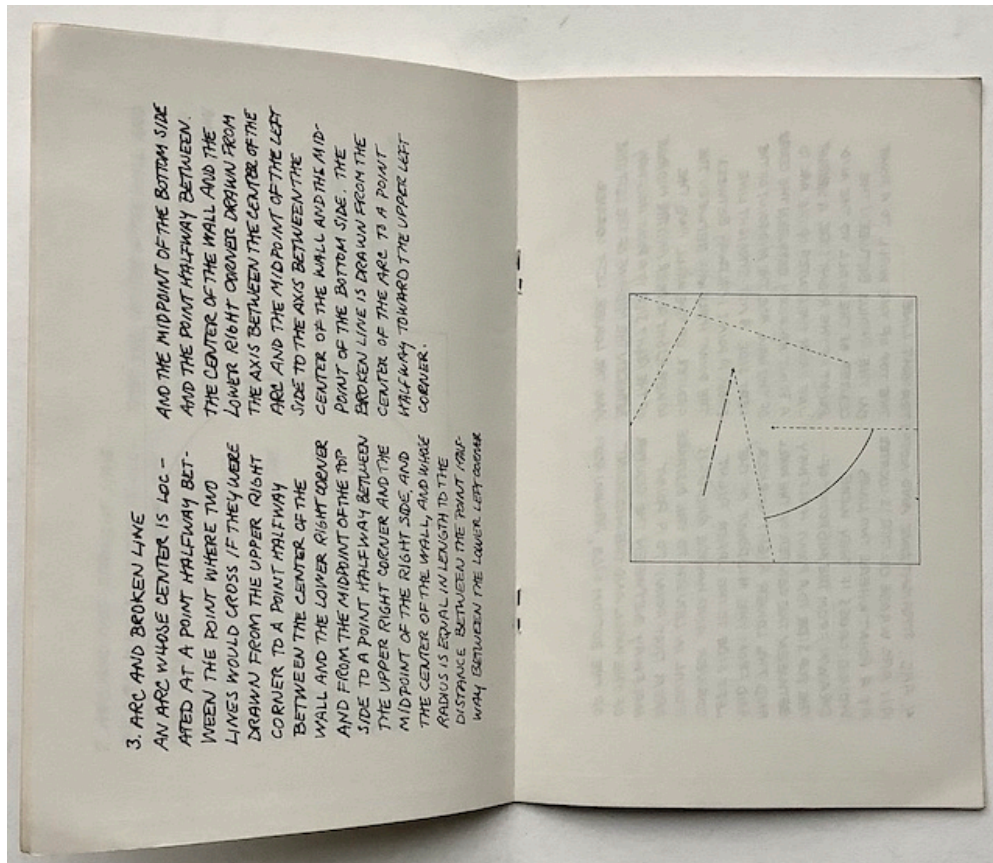 3. ARC AND BROKEN LINE
AN ARC WHOSE CENTER IS LOC-
ATED AT A POINT HALFWAY BET-
WEEN THE POINT WHERE TWO
LINES WOULD CROSS IF THEY WERE
DRAWN FROM THE UPPER RIGHT
CORNER TO A POINT HALFWAY
BETWEEN THE CENTER OF THE
WALL AND THE LOWER RIGHT CORNER
AND FROM THE MIDPOINT OF THE TOP
SIDE TO A POINT HALFWAY BETWEEN
THE UPPER RIGHT CORNER AND THE
MIDPOINT OF THE RIGHT SIDE, AND
THE CENTER OF THE WALL, AND WHOSE
RADIUS IS EQUAL IN LENGTH TO THE
DISTANCE BETWEEN THE POINT HALF-
WAY BETWEEN THE LOWER LEFT CORNER
AND THE MIDPOINT OF THE BOTTOM SIDE
AND THE POINT HALFWAY BETWEEN
THE CENTER OF THE WALL AND THE
LOWER RIGHT CORNER DRAWN FROM
THE AXIS BETWEEN THE CENTER OF THE
ARC AND THE MIDPOINT OF THE LEFT
SIDE TO THE AXIS BETWEEN THE
CENTER OF THE WALL AND THE MID-
POINT OF THE BOTTOM SIDE. THE
BROKEN LINE IS DRAWN FROM THE
CENTER OF THE ARC TO A POINT
HALFWAY TOWARD THE UPPER LEFT
CORNER.